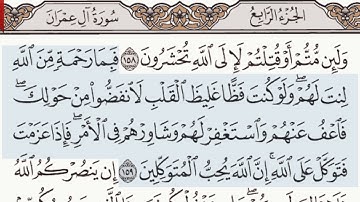 الجزء الرابع سورة آل عمران
وَلَئِن مُّتُّمْ أَوْ قُتِلْتُمْ لَإِلَى ٱللَّهِ تُحْشَرُونَ ١٥٨ فَبِمَا رَحْمَةٍ مِّنَ ٱللَّهِ
لِنتَ لَهُمْ ۖ وَلَوْ كُنتَ فَظًّا غَلِيظَ ٱلْقَلْبِ لَٱنفَضُّوا۟ مِنْ حَوْلِكَ ۖ
فَٱعْفُ عَنْهُمْ وَٱسْتَغْفِرْ لَهُمْ وَشَاوِرْهُمْ فِى ٱلْأَمْرِ ۖ فَإِذَا عَزَمْتَ
فَتَوَكَّلْ عَلَى ٱللَّهِ ۚ إِنَّ ٱللَّهَ يُحِبُّ ٱلْمُتَوَكِّلِينَ ١٥٩ إِن يَنصُرْكُمُ ٱللَّهُ